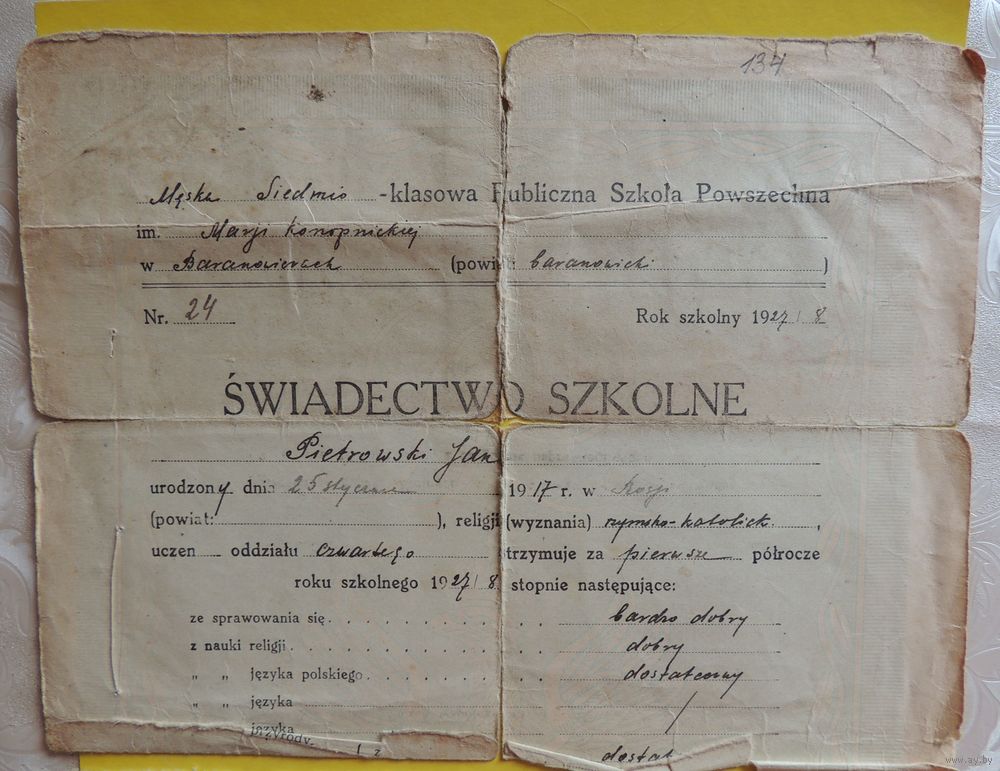 134
Męska Siedmio -klasowa Publiczna Szkoła Powszechna
im. Marji Konopnickiej
w Baranowiczach (powiat: baranowicki )
Nr. 24 Rok szkolny 1927/8
ŚWIADECTWO SZKOLNE
Pietrowski Jan
urodzony dnia 25 stycznia 1917 r. w Rosji
(powiat: ), religji (wyznania) rzymsko-katolick. ,
uczeń oddziału czwartego otrzymuje za pierwsze półrocze
roku szkolnego 1927/8 stopnie następujące:
ze sprawowania się. . . . . . . . . bardzo dobry
z nauki religji. . . . . . . . . . dobry
„ „ języka polskiego. . . . . . . dostateczny
„ „ języka /
języka
przyrody. dostat
www.ay.by